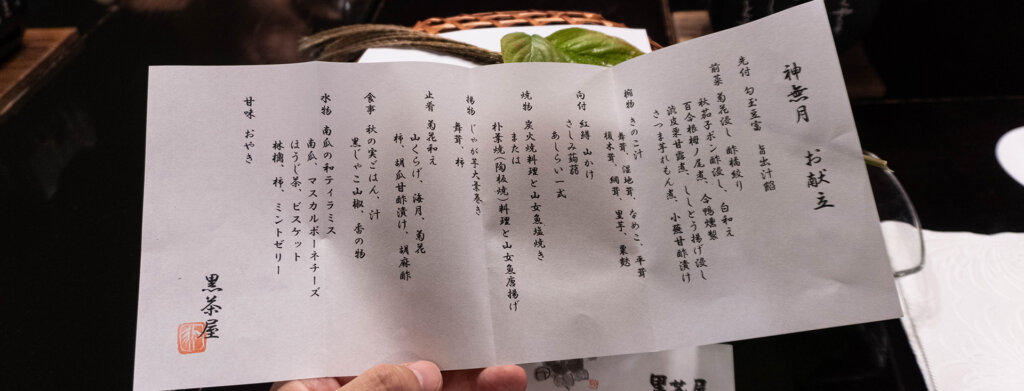 神無月　お献立
先付　勾玉豆富　旨出汁餡
前菜　菊花浸し　酢橘絞り
秋茄子ポン酢浸し、白和え
百合根梅ノ尾煮、合鴨燻製
渋皮栗甘露煮、ししとう揚げ浸し
さつま芋れもん煮、小蕪甘酢漬け
椀物　きのこ汁
舞茸、湿地茸、なめこ、平茸
榎木茸、網茸、里芋、粟麩
向付　紅鱒　山かけ
さしみ蒟蒻
あしらい一式
焼物　炭火焼料理と山女魚塩焼き
または
朴葉焼(陶板焼)料理と山女魚唐揚げ
揚物　じゃが芋大葉巻き
舞茸、柿
止肴　菊花和え
山くらげ、海月、菊花
柿、胡瓜甘酢漬け、胡麻酢
食事　秋の実ごはん、汁
黒じゃこ山椒、香の物
水物　南瓜の和ティラミス
南瓜、マスカルポーネチーズ
ほうじ茶、ビスケット
林檎、柿、ミントゼリー
甘味　おやき
黒茶屋
黒茶屋